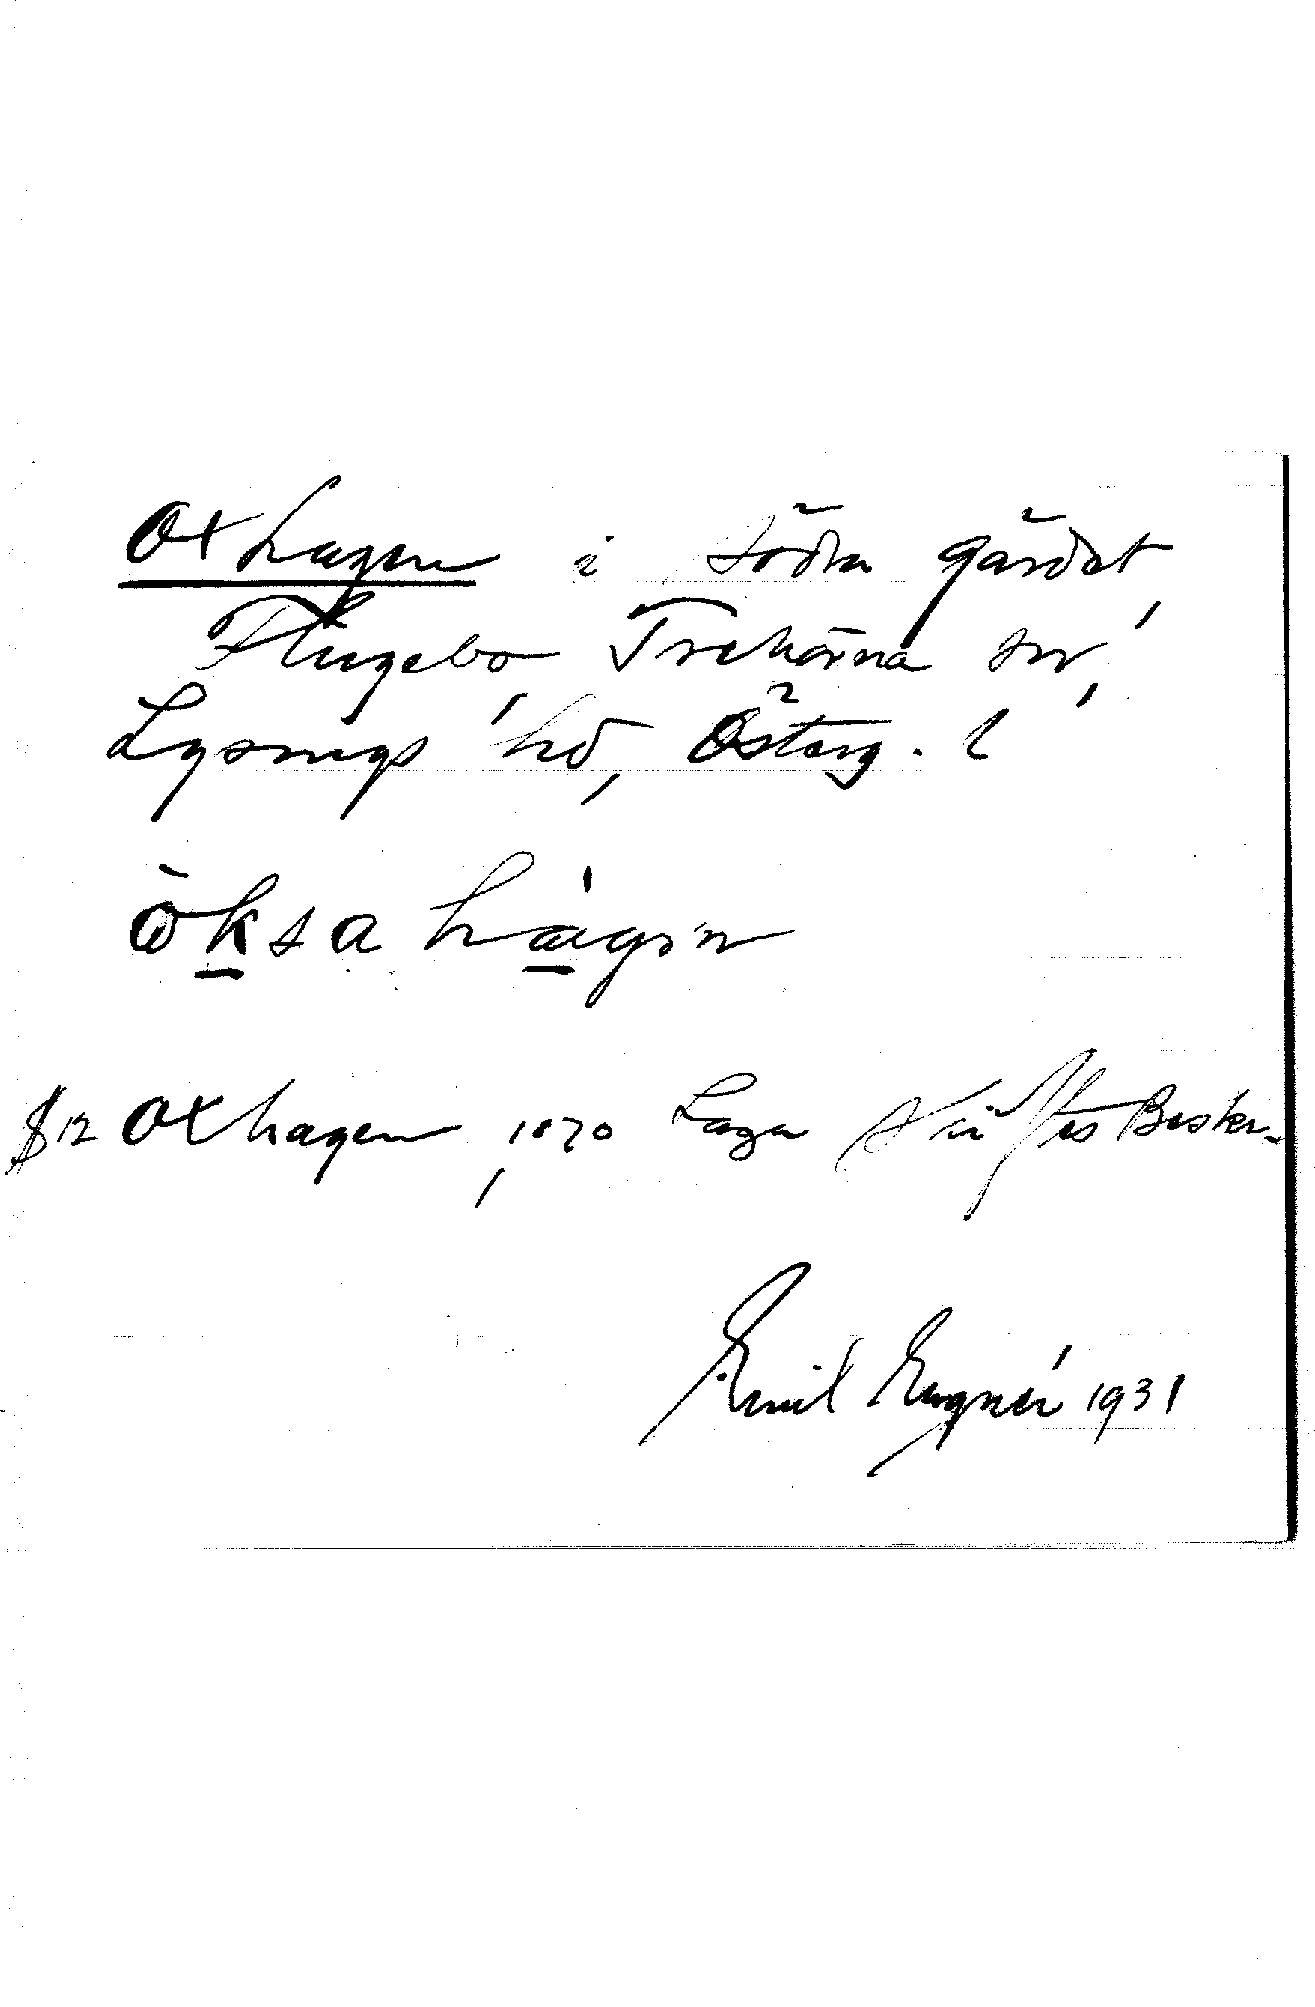 Oxhagen i södra gärdet
Flugebo, Trehörna sn,
Lysings hd, Österg. l
öksahagin
§12 Oxhagen, 1870 Laga Skiftes Beskr.
Emil 1931